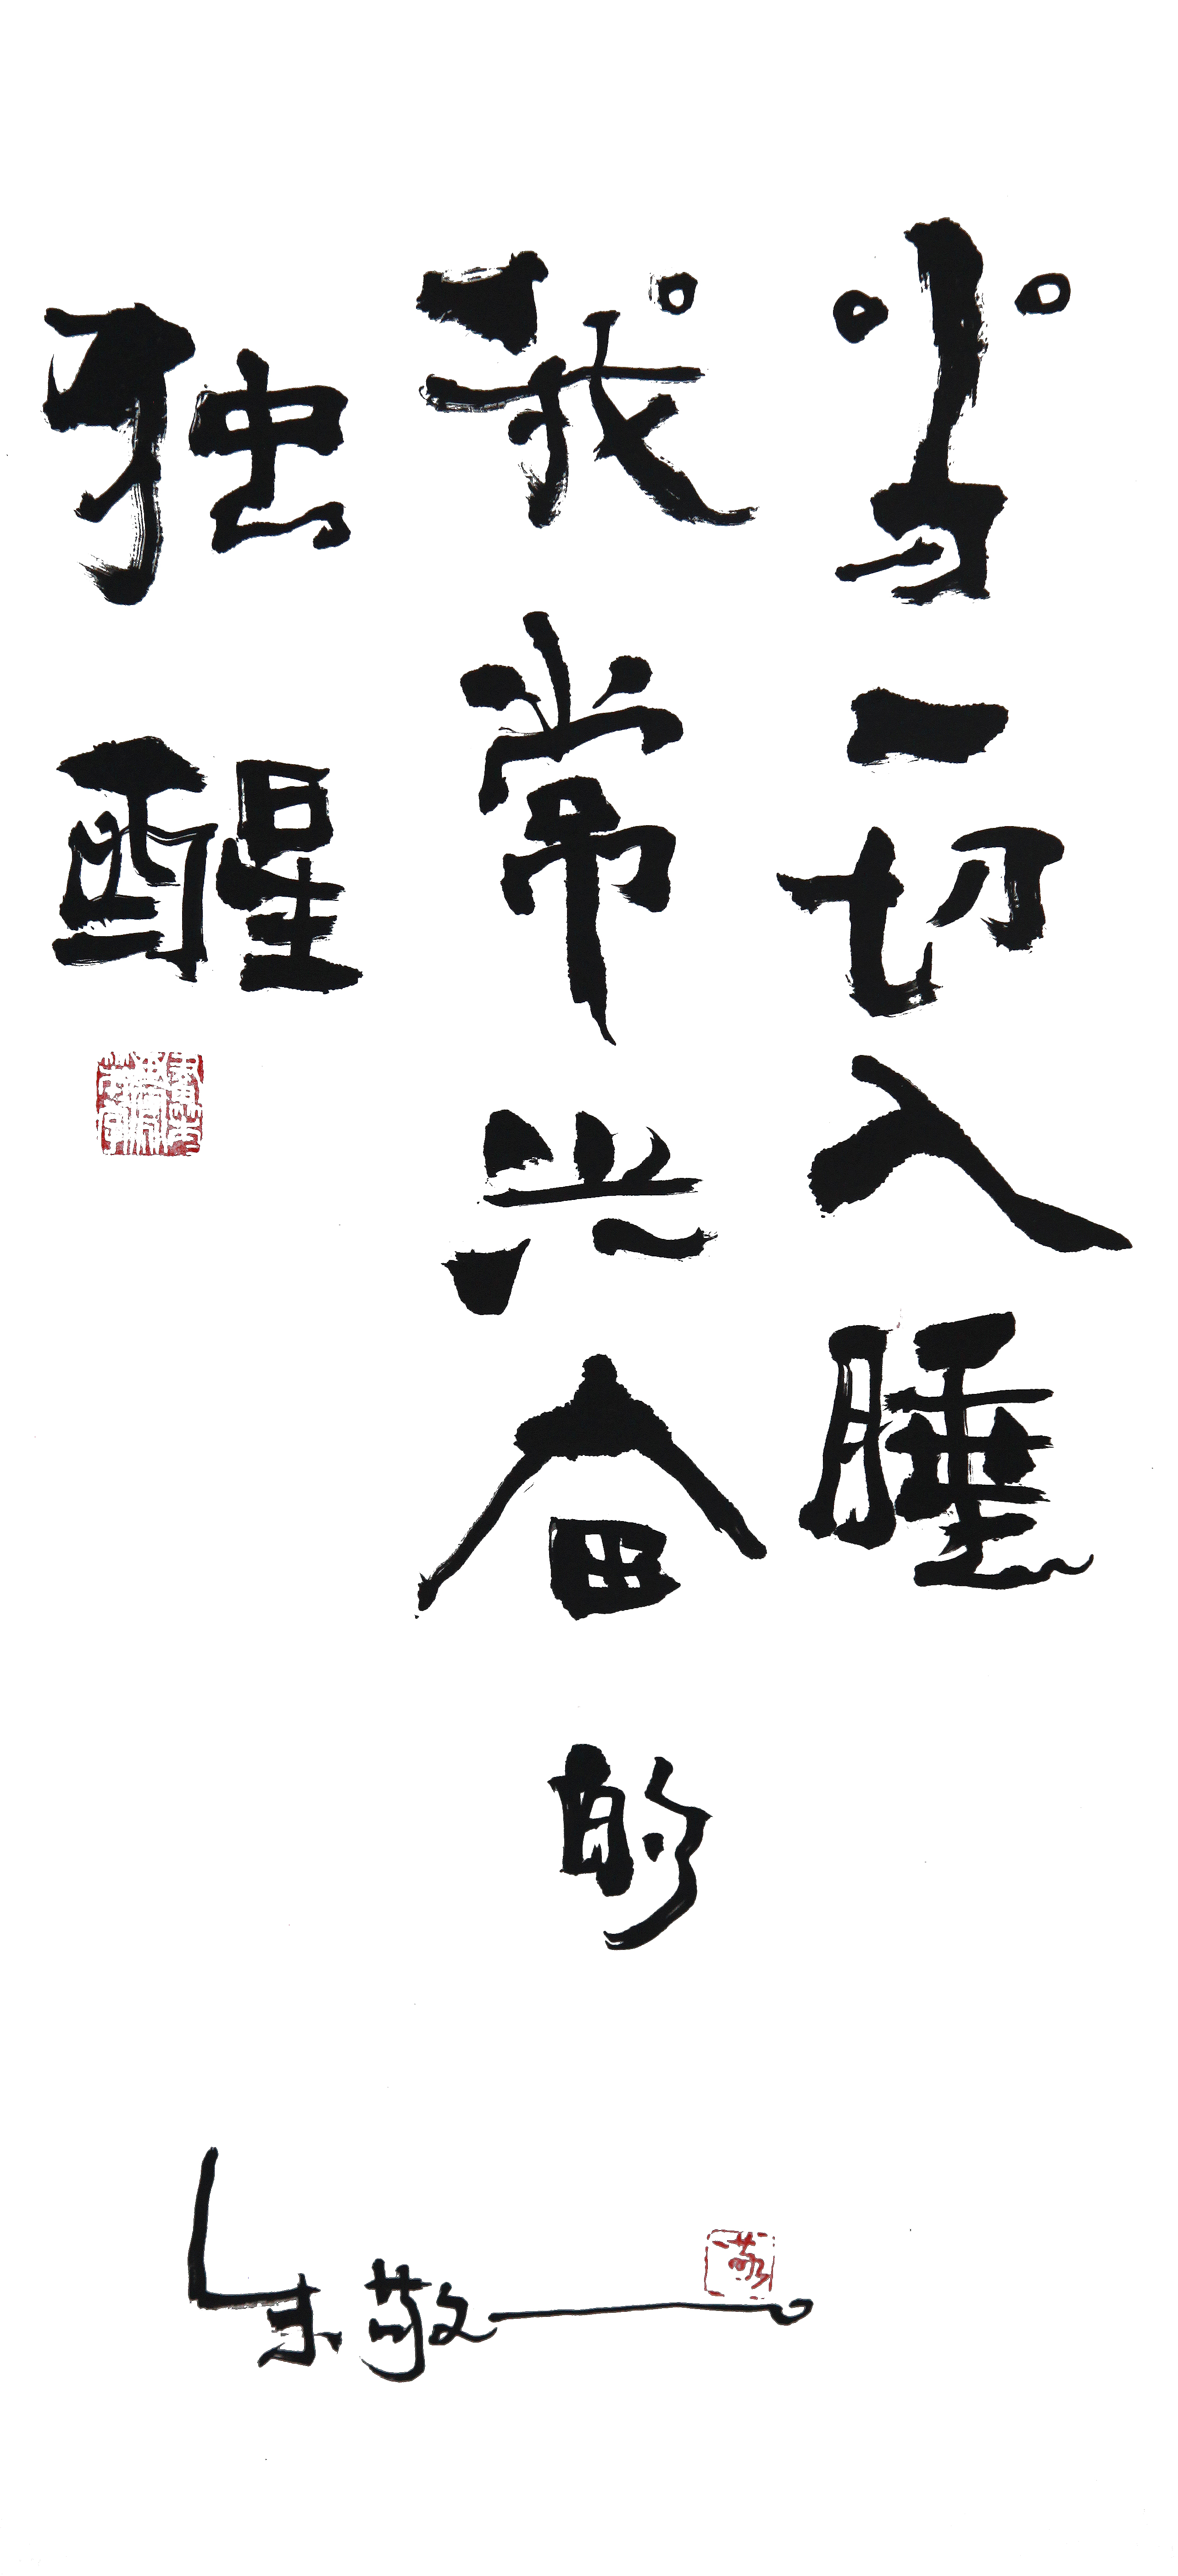 当一切入睡
我常兴奋的
独醒
朱敬
敬